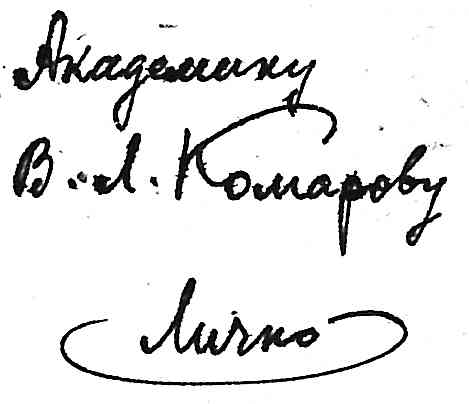 Академику
В. Л. Комарову
Лично